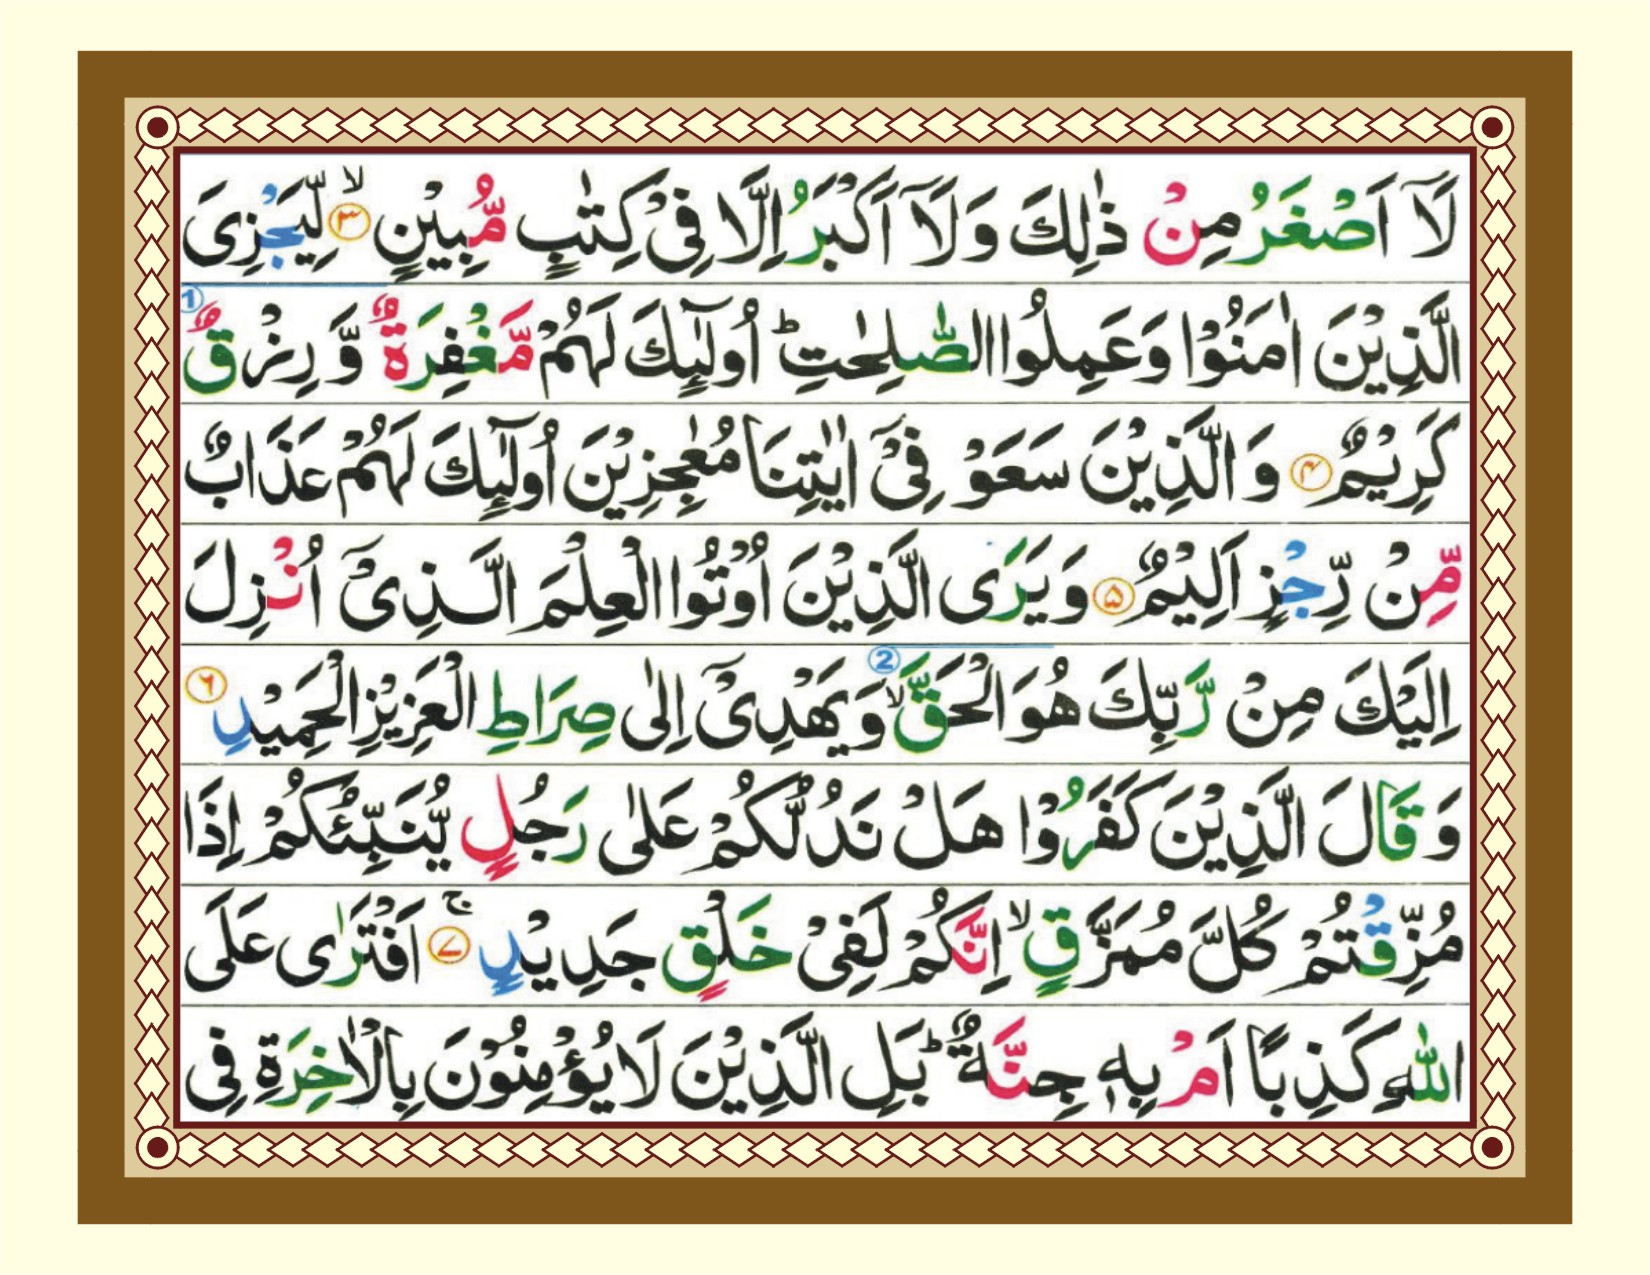 لَاۤ اَصْغَرُ مِنْ ذٰلِكَ وَلَاۤ اَكْبَرُ اِلَّا فِیْ كِتٰبٍ مُّبِیْنٍ ۙ﴿۳﴾ لِّیَجْزِیَ
الَّذِیْنَ اٰمَنُوْا وَعَمِلُوا الصّٰلِحٰتِ ؕ اُولٰٓئِكَ لَهُمْ مَّغْفِرَةٌ وَّ رِزْقٌ 1
كَرِیْمٌ ﴿۴﴾ وَ الَّذِیْنَ سَعَوْ فِیْۤ اٰیٰتِنَا مُعٰجِزِیْنَ اُولٰٓئِكَ لَهُمْ عَذَابٌ
مِّنْ رِّجْزٍ اَلِیْمٌ ﴿۵﴾ وَ یَرَی الَّذِیْنَ اُوْتُوا الْعِلْمَ الَّذِیْۤ اُنْزِلَ
اِلَیْكَ مِنْ رَّبِّكَ هُوَ الْحَقَّ ۙ 2 وَ یَهْدِیْۤ اِلٰی صِرَاطِ الْعَزِیْزِ الْحَمِیْدِ ﴿۶﴾
وَ قَالَ الَّذِیْنَ كَفَرُوْا هَلْ نَدُلُّكُمْ عَلٰی رَجُلٍ یُّنَبِّئُكُمْ اِذَا
مُزِّقْتُمْ كُلَّ مُمَزَّقٍ ۙ اِنَّكُمْ لَفِیْ خَلْقٍ جَدِیْدٍ ۚ﴿۷﴾ اَفْتَرٰی عَلَی
اللّٰهِ كَذِبًا اَمْ بِهٖ جِنَّةٌ ؕ بَلِ الَّذِیْنَ لَا یُؤْمِنُوْنَ بِالْاٰخِرَةِ فِی